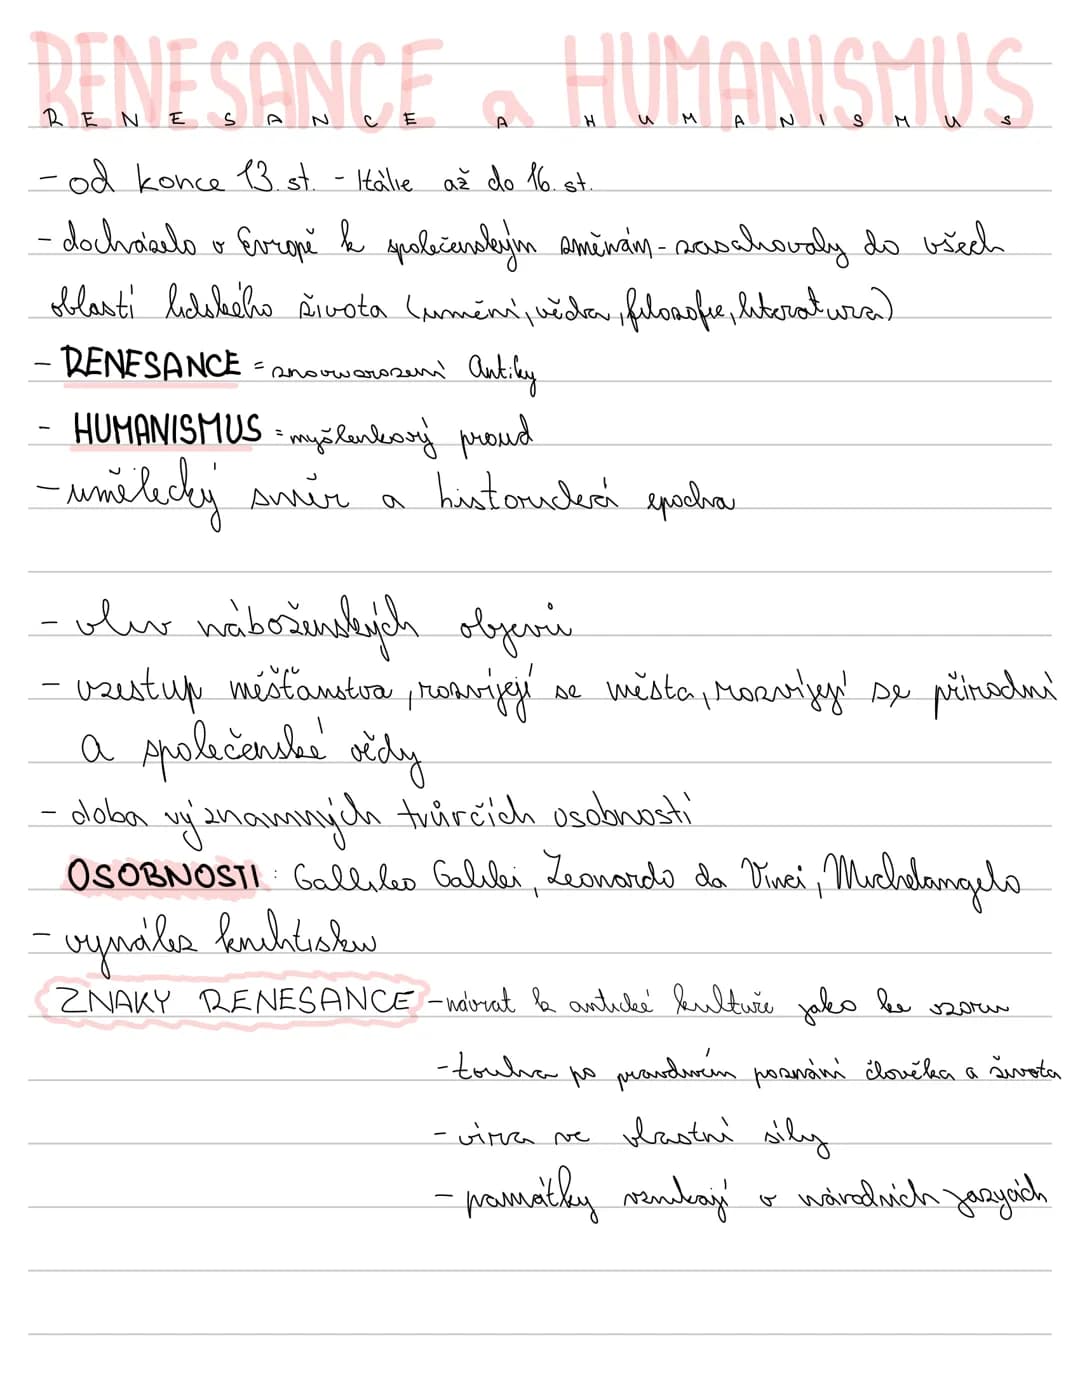 RENESANCE a HUMANISMUS
RENESANCE A HUMANISMUS
- od konce 13. st. - Itálie až do 16. st.
- docházelo v Evropě k společenským změnám - zasahovaly do všech
oblastí lidského života (umění, věda, filozofie, literatura)
- RENESANCE = znovuzrození Antiky
- HUMANISMUS = myšlenkový proud
- umělecký směr a historická epocha
- vliv náboženských objevů
- vzestup měšťanstva, rozvíjejí se města, rozvíjejí se přírodní
a společenské vědy
- doba významných tvůrčích osobností
OSOBNOSTI: Gallileo Galilei, Leonardo da Vinci, Michelangelo
- vynález knihtisku
ZNAKY RENESANCE - návrat k antické kultuře jako ke vzoru
- touha po pravdivém poznání člověka a života
- víra ve vlastní síly
- památky vznikají v národních jazycích